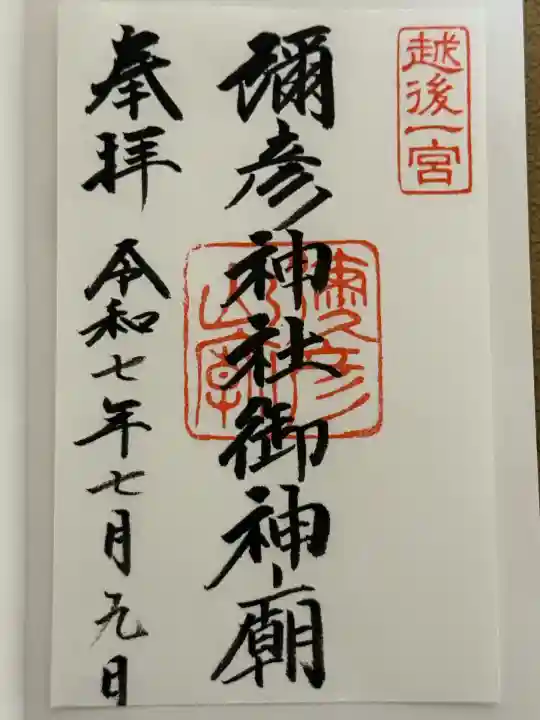 越後一宮
彌彦神社御神廟
奉拝
令和七年七月九日